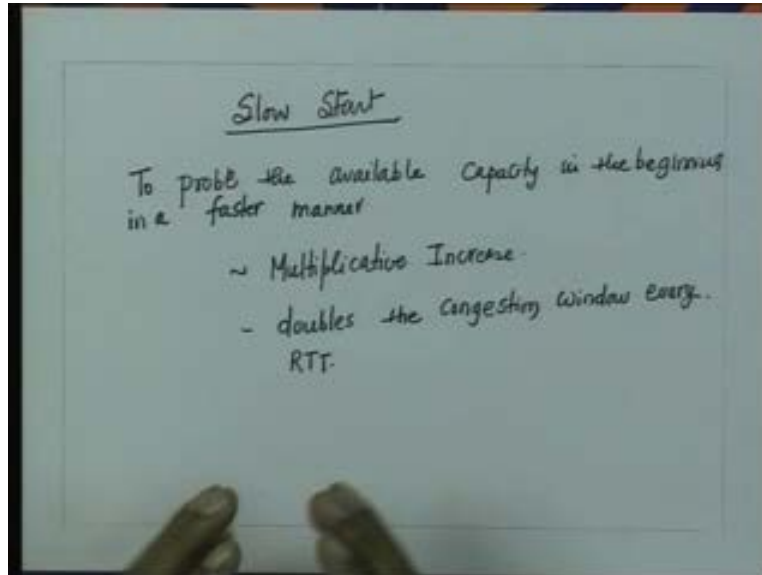 Slow Start
To probe the available capacity in the beginning
in a faster manner
~ Multiplicative Increase.
- doubles the congestion window every.
RTT.